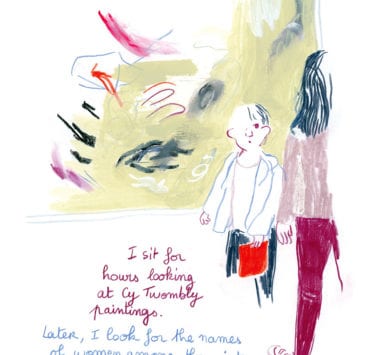 I sit for
hours looking
at Cy Twombly
paintings.
Later, I look for the names
of women among the